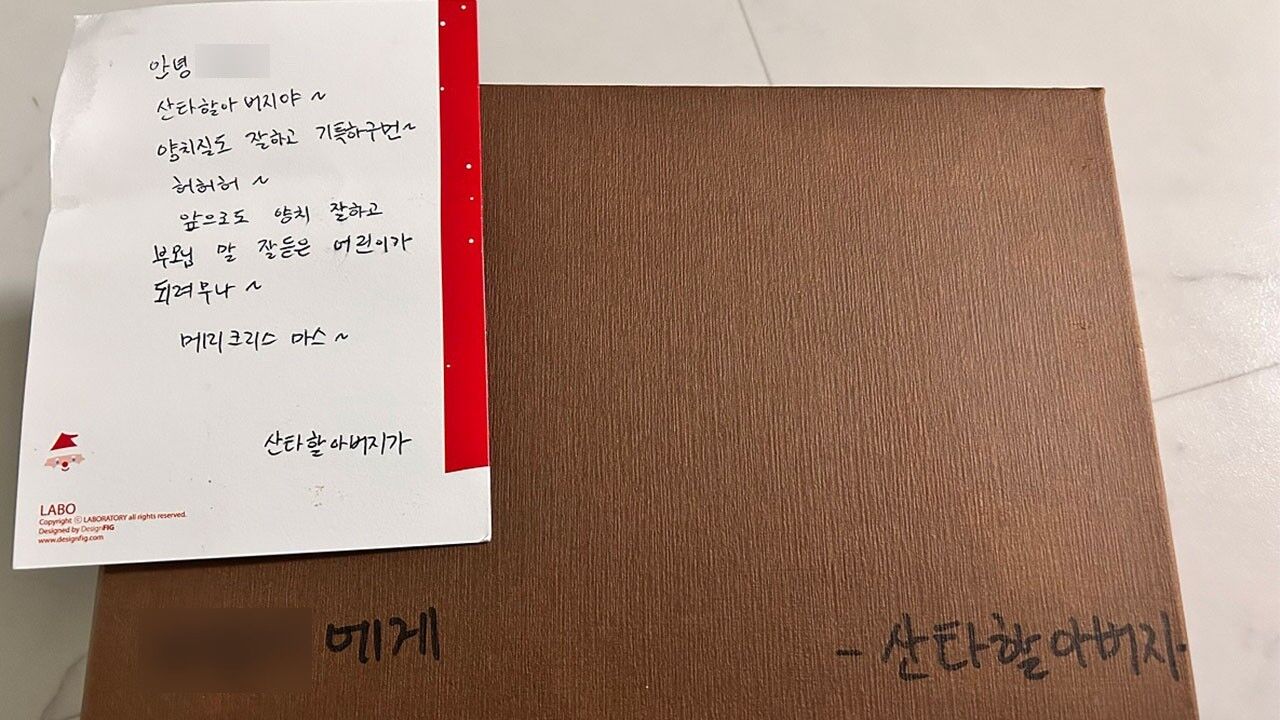 안녕
산타할아버지야~
양치질도 잘하고 기특하구먼~
허허허~
앞으로도 양치 잘하고
부모님 말 잘듣은 어린이가
되려무나~
메리크리스마스~
산타할아버지가
LABO
Copyright ⓒ LABORATORY all rights reserved.
Designed by DesignFIG
www.designfig.com
에게
- 산타할아버지